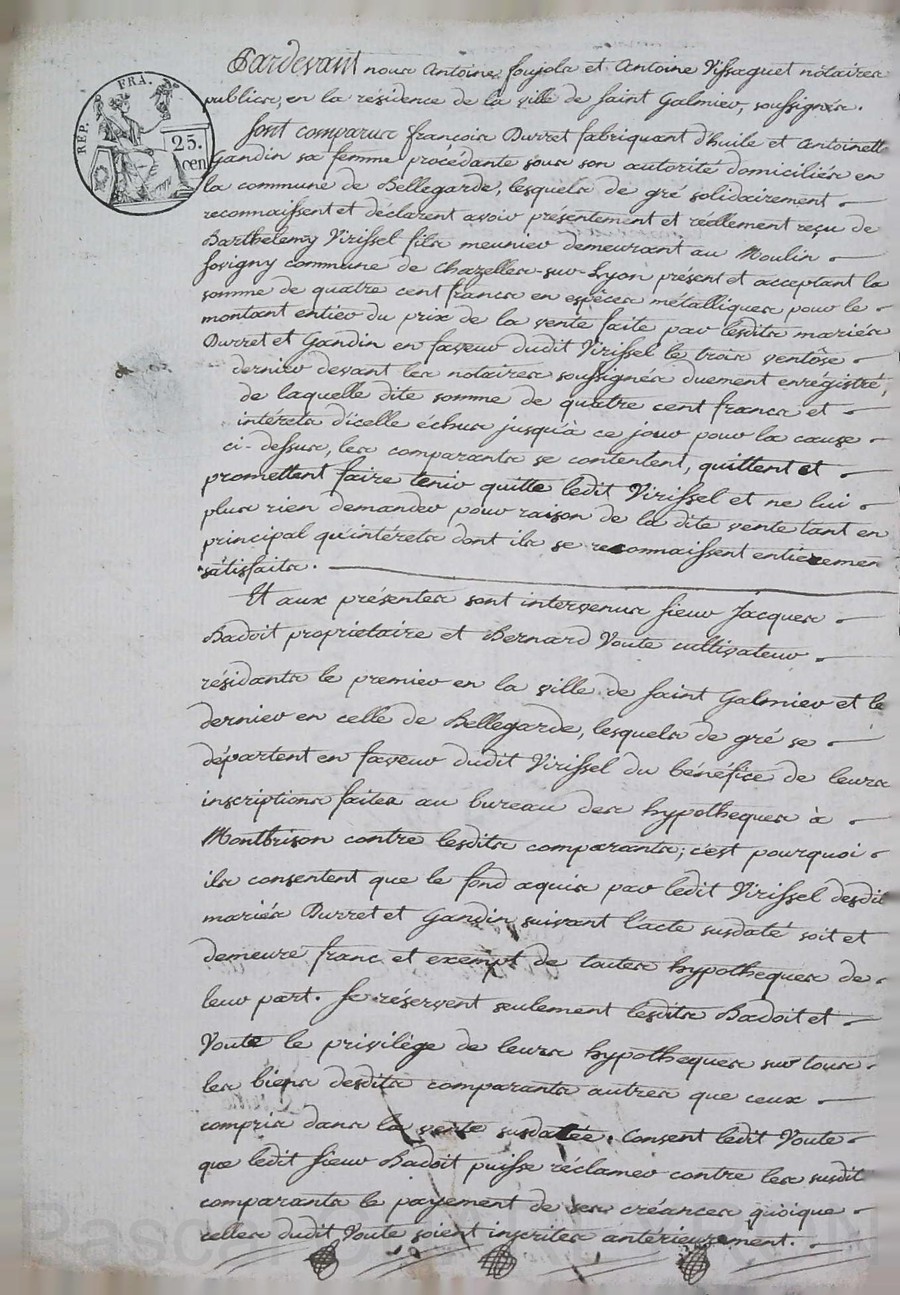 REP. FRA.
25.
cen
Pardevant nous Antoine Soujols et Antoine Vissaguet notaires
publics, en la résidence de la ville de Saint Galmier, soussignés.
Sont comparus François Durret fabriquant d'huile et Antoinette
Gandin sa femme procédante sous son autorité domiciliés en
la commune de Bellegarde, lesquels de gré solidairement
reconnaissent et déclarent avoir présentement et réellement reçu de
Barthelemy Virissel fils meunier demeurant au Moulin
Sovigny commune de Chazelles-sur-Lyon présent et acceptant la
somme de quatre cent francs en espèces métalliques pour le
montant entier du prix de la vente faite par lesdits mariés
Durret et Gandin en faveur dudit Virissel le trois ventôse
dernier devant les notaires soussignés duement enrégistré,
de laquelle dite somme de quatre cent francs et
intérêts d'icelle échus jusqu'à ce jour pour la cause
ci-dessus, les comparants se contentent, quittent et
promettent faire tenir quitte ledit Virissel et ne lui
plus rien demander pour raison de la dite vente tant en
principal qu'intérêts dont ils se reconnaissent entièremen
satisfaits.
Et aux présentes sont intervenus sieur Jacques
Badoit propriétaire et Bernard Voute cultivateur
résidants le premier en la ville de Saint Galmier et le
dernier en celle de Bellegarde, lesquels de gré se
départent en faveur dudit Virissel du bénéfice de leurs
inscriptions faites au bureau des hypotheques à
Montbrison contre lesdits comparants; c'est pourquoi
ils consentent que le fond aquis par ledit Virissel desdit
mariés Durret et Gandin suivant l'acte susdaté soit et
demeure franc et exempt de toutes hypotheques de
leur part. Se réservent seulement lesdits Badoit et
Voute le privilège de leurs hypotheques sur tous
les biens desdits comparants autres que ceux
compris dans la vente susdatée. Consent ledit Voute
que ledit sieur Badoit puisse réclamer contre les susdit
comparants le payement de ses créances quoique
celles dudit Voute soient inscrites antérieurement.
Pascal